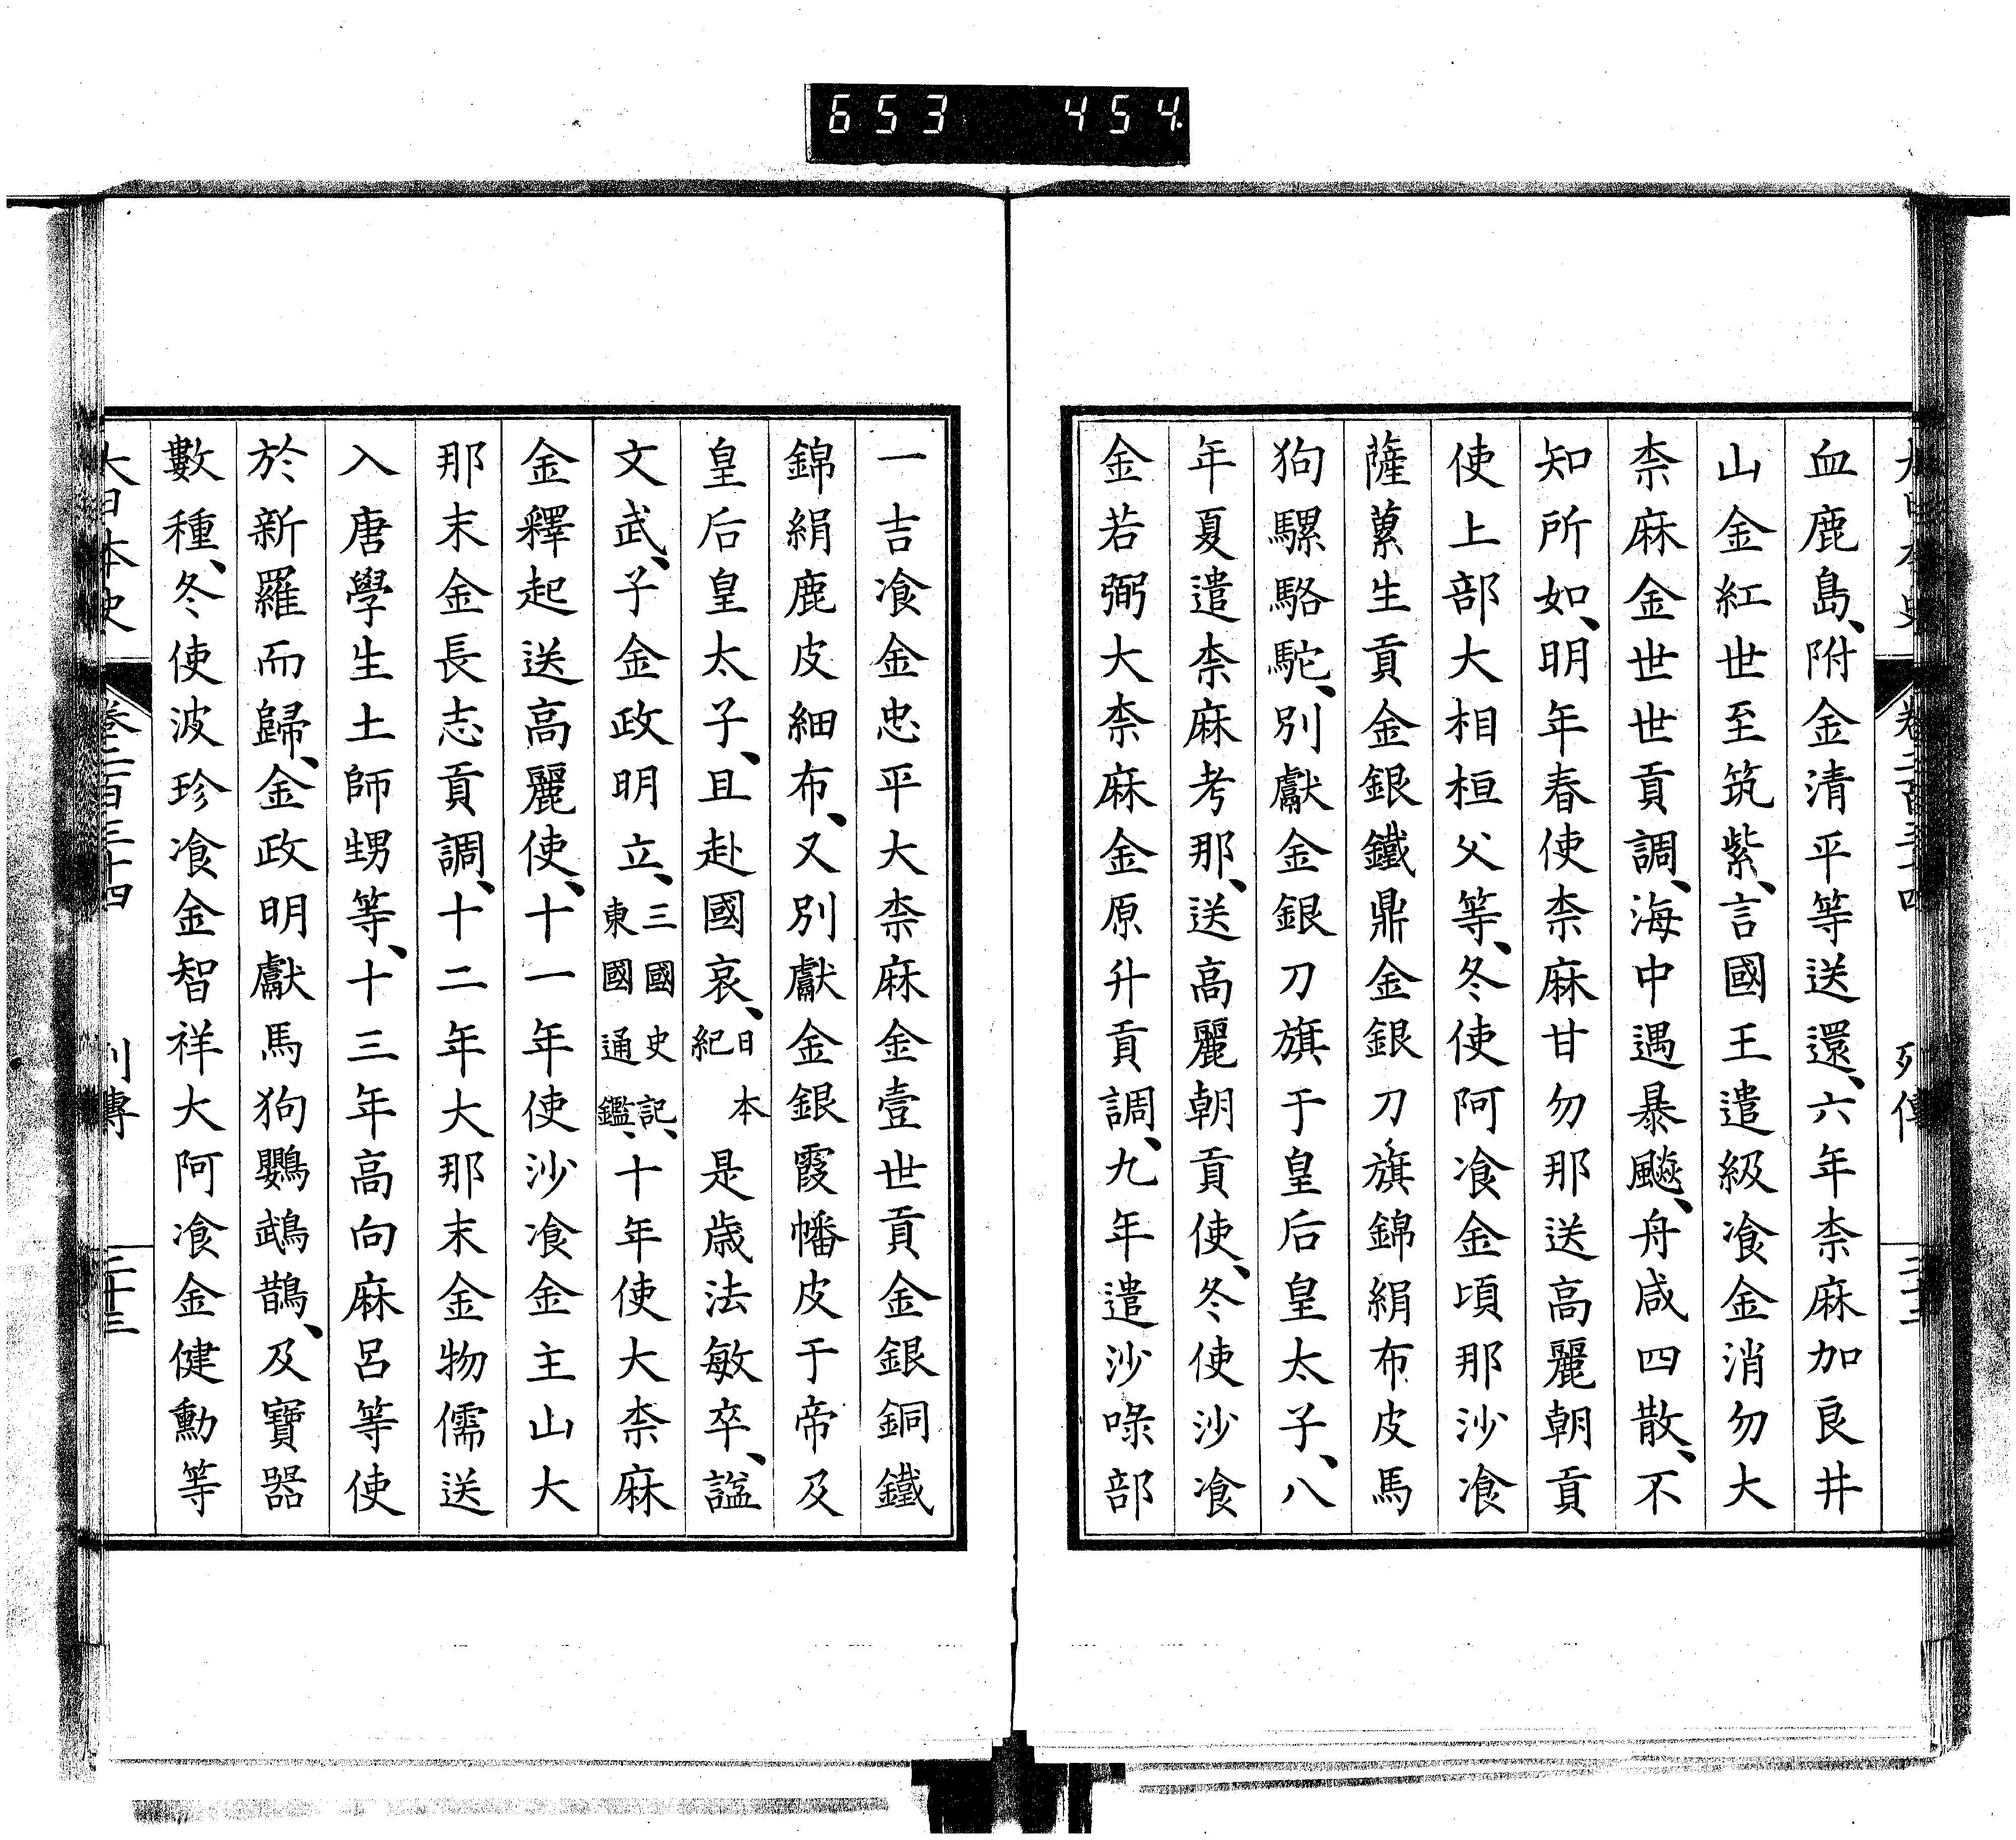 653 454
大日本史 卷二百三十四 列傳
血鹿島、附金清平等送還、六年柰麻加良井
山金紅世至筑紫、言國王遣級飡金消勿大
柰麻金世世貢調、海中遇暴颷、舟咸四散、不
知所如、明年春使柰麻甘勿那送高麗朝貢
使上部大相桓父等、冬使阿飡金項那沙飡
薩蔂生貢金銀鐵鼎金銀刀旗錦絹布皮馬
狗騾駱駝、別獻金銀刀旗于皇后皇太子、八
年夏遣柰麻考那、送高麗朝貢使、冬使沙飡
金若弼大柰麻金原升貢調、九年遣沙㖨部
一吉飡金忠平大柰麻金壹世貢金銀銅鐵
錦絹鹿皮細布、又別獻金銀霞幡皮于帝及
皇后皇太子、且赴國哀、日本紀 是歳法敏卒、謚
文武、子金政明立、三國史記、東國通鑑、十年使大柰麻
金釋起送高麗使、十一年使沙飡金主山大
那末金長志貢調、十二年大那末金物儒送
入唐學生土師甥等、十三年高向麻呂等使
於新羅而歸、金政明獻馬狗鸚鵡鵲、及寶器
數種、冬使波珍飡金智祥大阿飡金健勳等
大日本史 卷二百三十四 列傳 二十三